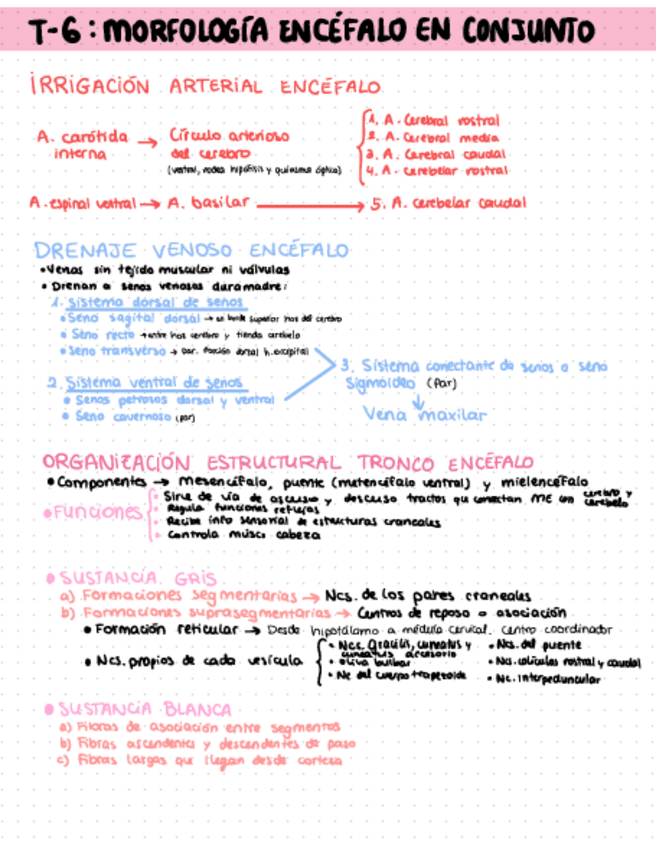 T-6: MORFOLOGÍA ENCÉFALO EN CONJUNTO
IRRIGACIÓN ARTERIAL ENCÉFALO
A. carótida interna → Círculo arterioso del cerebro
(ventral, rodea hipófisis y quiasma óptico)
1. A. Cerebral rostral
2. A. Cerebral media
3. A. Cerebral caudal
4. A. cerebelar rostral
A. espinal ventral → A. basilar → 5. A. cerebelar caudal
DRENAJE VENOSO ENCÉFALO
• Venas sin tejido muscular ni válvulas
• Drenan a senos venosos duramadre:
1. Sistema dorsal de senos
• Seno sagital dorsal → en borde superior hoz del cerebro
• Seno recto → entre hoz cerebro y tienda cerebelo
• Seno transverso → par. Porción dorsal h. occipital
2. Sistema ventral de senos
• Senos petrosos dorsal y ventral
• Seno cavernoso (par)
3. Sistema conectante de senos o seno
sigmoideo (Par)
↓
Vena maxilar
ORGANIZACIÓN ESTRUCTURAL TRONCO ENCÉFALO
• Componentes → mesencéfalo, puente (metencéfalo ventral) y mielencéfalo
• Funciones
• Sirve de vía de ascenso y descenso tractos que conectan ME con cerebro y cerebelo
• Regula funciones reflejas
• Recibe info sensorial de estructuras craneales
• Controla músc. cabeza
• SUSTANCIA GRIS
a) Formaciones segmentarias → Ncs. de los pares craneales
b) Formaciones suprasegmentarias → Centros de reposo o asociación
• Formación reticular → Desde hipotálamo a médula cervical. centro coordinador
• Ncs. propios de cada vesícula
• Ncs. Gracilis, cuneatus y
cuneatus accesorio
• oliva bulbar
• Nc del cuerpo trapezoide
• Ncs. del puente
• Ncs. colículos rostral y caudal
• Nc. Interpeduncular
• SUSTANCIA BLANCA
a) Fibras de asociación entre segmentos
b) Fibras ascendentes y descendentes de paso
c) Fibras largas que llegan desde corteza